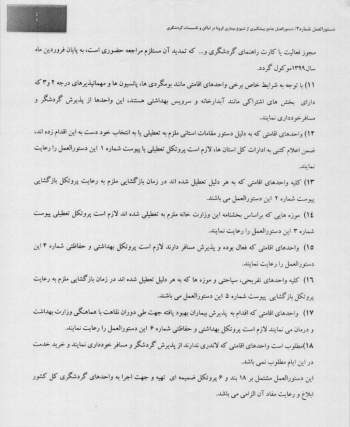 دستورالعمل شماره ۲: دستورالعمل جامع پیشگیری از شیوع بیماری کرونا در اماکن و تاسیسات گردشگری
مجوز فعالیت یا کارت راهنمای گردشگری و... که تمدید آن مستلزم مراجعه حضوری است، به پایان فروردین ماه
سال ۱۳۹۹موکول گردد.
۱۱) با توجه به شرایط خاص برخی واحدهای اقامتی مانند بومگردی ها، پانسیون ها و مهمانپذیرهای درجه ۲و۳ که
دارای بخش های اشتراکی مانند آبدارخانه و سرویس بهداشتی هستند، این واحدها از پذیرش گردشگر و
مسافرخودداری نمایند.
۱۲) واحدهای اقامتی که به دلیل دستور مقامات استانی ملزم به تعطیلی یا به انتخاب خود دست به این اقدام زده اند،
ضمن اعلام کتبی به ادارات کل استان ها، لازم است پروتکل تعطیلی یا پیوست شماره ۱ این دستورالعمل را رعایت
نمایند.
۱۳) کلیه واحدهای اقامتی که به هر دلیل تعطیل شده اند در زمان بازگشایی ملزم به رعایت پروتکل بازگشایی
پیوست شماره ۲ این دستورالعمل می باشند.
۱۴) موزه هایی که براساس بخشنامه این وزارت خانه ملزم به تعطیلی شده اند لازم است پروتکل تعطیلی پیوست
شماره ۳ این دستورالعمل را رعایت نمایند.
۱۵) واحدهای اقامتی که فعال بوده و پذیرش مسافر دارند لازم است پروتکل بهداشتی و حفاظتی شماره ۴ این
دستورالعمل را رعایت نمایند.
۱۶) کلیه واحدهای تفریحی، سیاحتی و موزه ها که به هر دلیل تعطیل شده اند در زمان بازگشایی ملزم به رعایت
پروتکل بازگشایی پیوست شماره ۵ این دستورالعمل می باشند.
۱۷) واحدهای اقامتی که اقدام به پذیرش بیماران بهبود یافته جهت طی دوران نقاهت با هماهنگی وزارت بهداشت
و درمان می نمایند لازم است پروتکل بهداشتی و حفاظتی شماره ۶ این دستورالعمل را رعایت نمایند.
۱۸)مطلوب است واحدهای اقامتی که لاندری ندارند از پذیرش گردشگر و مسافر خودداری نمایند و خرید خدمت
در این ایام مطلوب نمی باشد.
این دستورالعمل مشتمل بر ۱۸ بند و ۶ پروتکل ضمیمه ای تهیه و جهت اجرا به واحدهای گردشگری کل کشور
ابلاغ و رعایت مفاد آن الزامی می باشد.